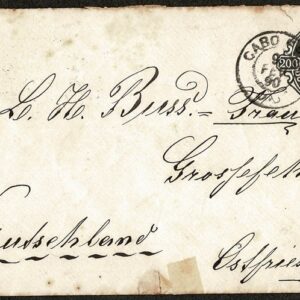 CABO
9
200
L. H. Buss.=Grau
Grossefe
utschland
Ostfries